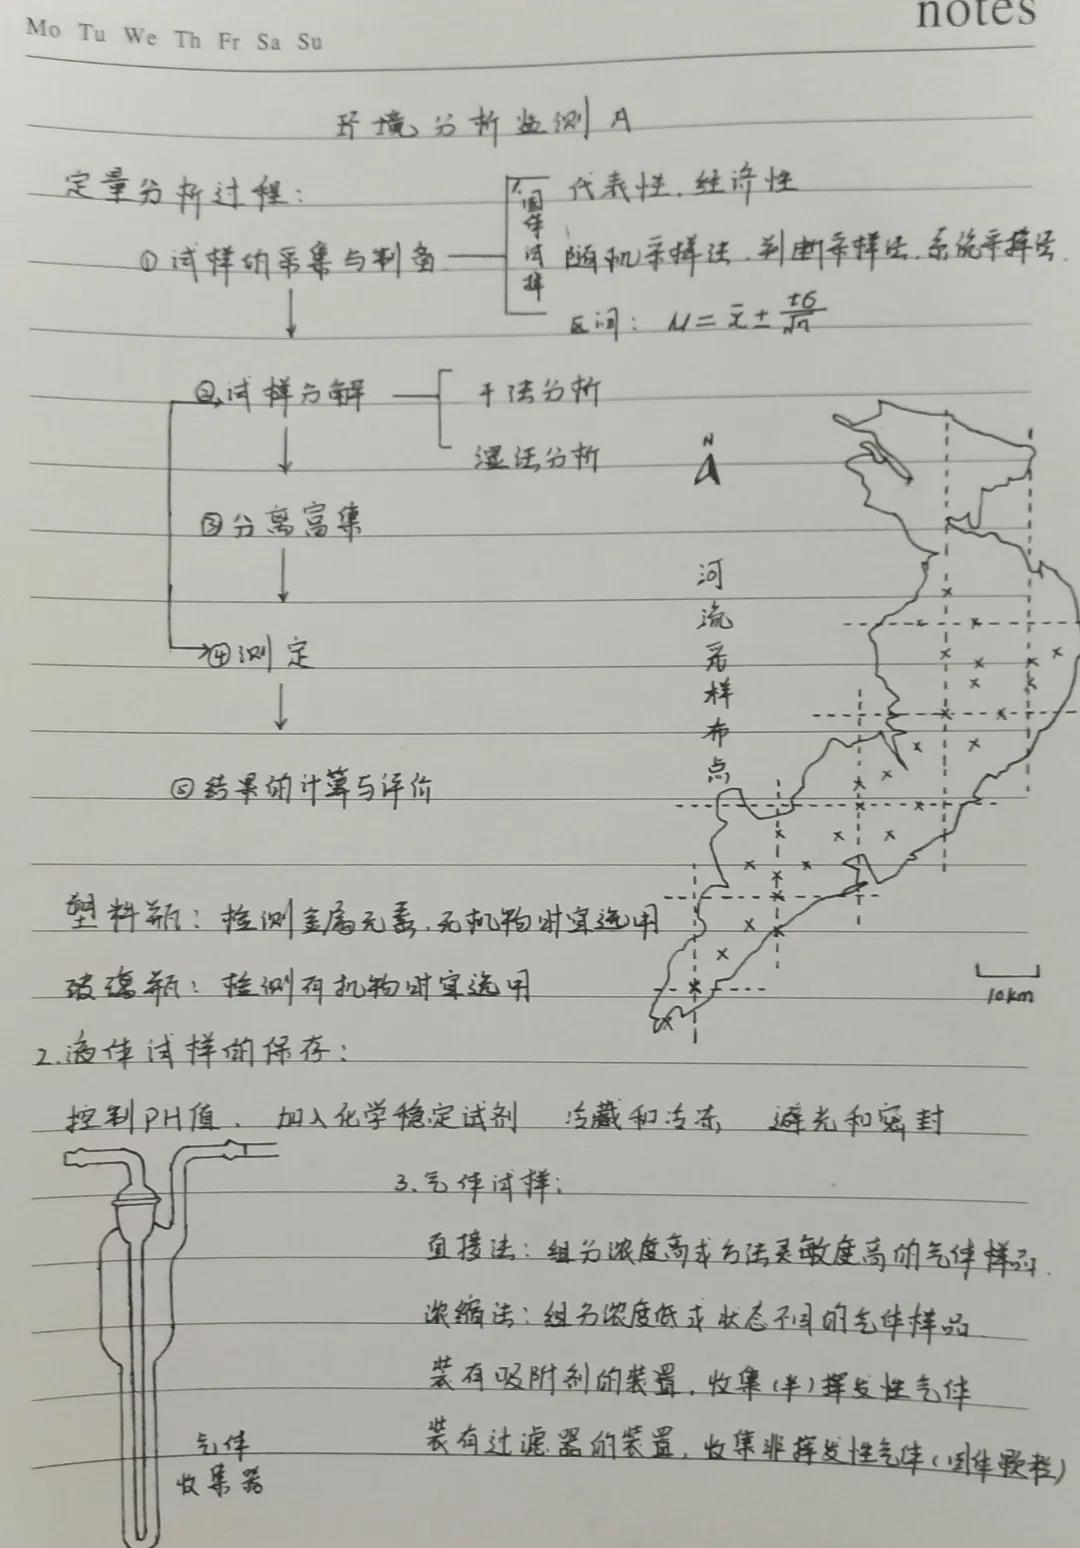 notes
Mo Tu We Th Fr Sa Su
环境分析监测 A
定量分析过程:
1.固体试样
代表性.经济性
①试样的采集与制备
随机采样法.判断采样法.系统采样法.
区间: μ = x̄ ± tσ/√n
②试样分解
干法分析
湿法分析
N
③分离富集
河流采样布点
④测定
⑤结果的计算与评价
塑料瓶: 检测金属元素.无机物时宜选用
玻璃瓶: 检测有机物时宜选用
10km
2.液体试样的保存:
控制PH值、 加入化学稳定试剂 冷藏和冷冻 避光和密封
3.气体试样:
直接法: 组分浓度高或方法灵敏度高的气体样品.
浓缩法: 组分浓度低或状态不同的气体样品
装有吸附剂的装置.收集(半)挥发性气体
装有过滤器的装置.收集非挥发性气体(固体颗粒)
气体
收集器